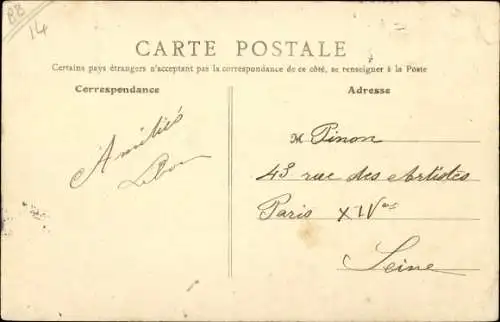 BB
14
CARTE POSTALE
Certains pays étrangers n'acceptant pas la correspondance de ce côté, se renseigner à la Poste
Correspondance
Amitiés
Adresse
M Pinon
43 rue des Artistes
Paris XIVme
Seine